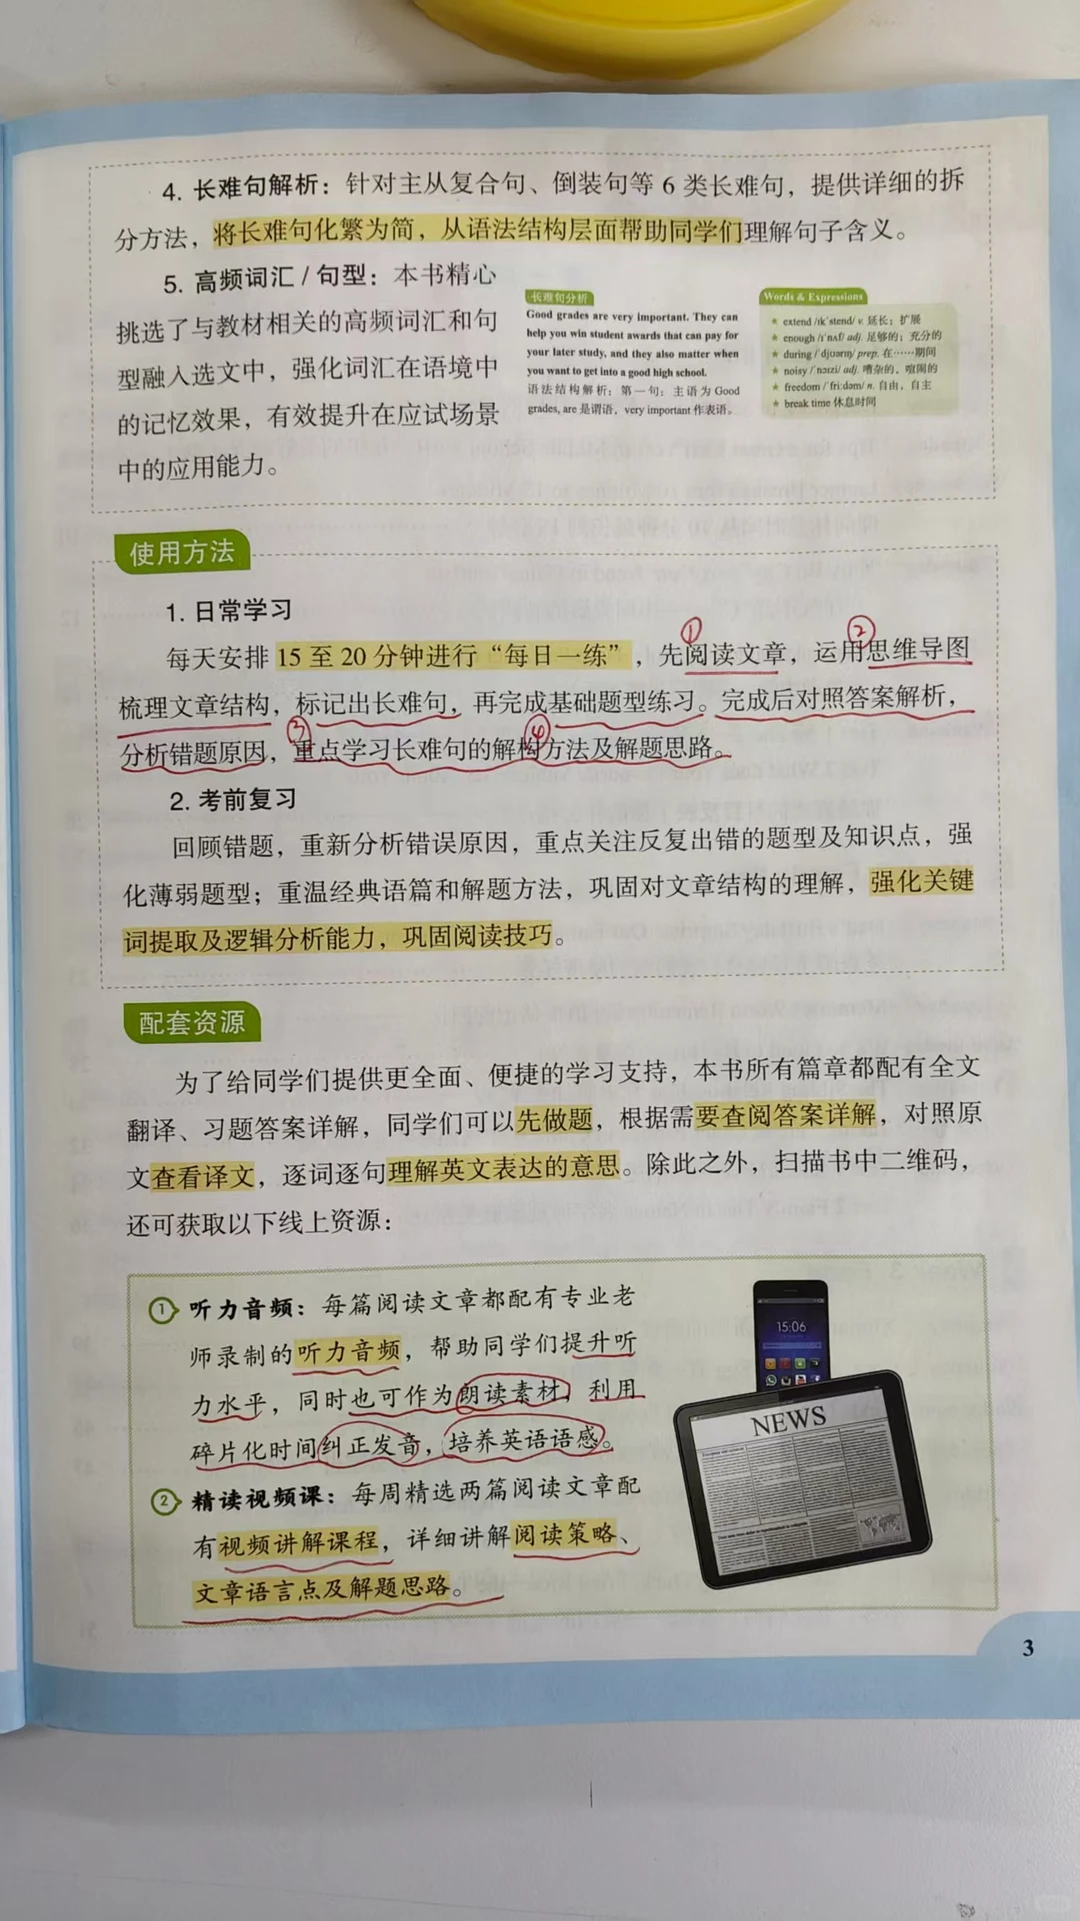 4. 长难句解析：针对主从复合句、倒装句等 6 类长难句，提供详细的拆
分方法，将长难句化繁为简，从语法结构层面帮助同学们理解句子含义。
5. 高频词汇 / 句型：本书精心
挑选了与教材相关的高频词汇和句
型融入选文中，强化词汇在语境中
的记忆效果，有效提升在应试场景
中的应用能力。
长难句分析
Good grades are very important. They can
help you win student awards that can pay for
your later study, and they also matter when
you want to get into a good high school.
语法结构解析：第一句：主语为 Good
grades, are 是谓语，very important 作表语。
Words & Expressions
★ extend /ɪkˈstend/ v. 延长；扩展
★ enough /ɪˈnʌf/ adj. 足够的；充分的
★ during /ˈdjʊərɪŋ/ prep. 在……期间
★ noisy /ˈnɔɪzi/ adj. 嘈杂的，喧闹的
★ freedom /ˈfriːdəm/ n. 自由，自主
★ break time 休息时间
使用方法
1. 日常学习
① ②
每天安排 15 至 20 分钟进行“每日一练”，先阅读文章，运用思维导图
梳理文章结构，标记出长难句，再完成基础题型练习。完成后对照答案解析，
③ ④
分析错题原因，重点学习长难句的解构方法及解题思路。
2. 考前复习
回顾错题，重新分析错误原因，重点关注反复出错的题型及知识点，强
化薄弱题型；重温经典语篇和解题方法，巩固对文章结构的理解，强化关键
词提取及逻辑分析能力，巩固阅读技巧。
配套资源
为了给同学们提供更全面、便捷的学习支持，本书所有篇章都配有全文
翻译、习题答案详解，同学们可以先做题，根据需要查阅答案详解，对照原
文查看译文，逐词逐句理解英文表达的意思。除此之外，扫描书中二维码，
还可获取以下线上资源：
① 听力音频：每篇阅读文章都配有专业老
师录制的听力音频，帮助同学们提升听
力水平，同时也可作为朗读素材，利用
碎片化时间纠正发音，培养英语语感。
② 精读视频课：每周精选两篇阅读文章配
有视频讲解课程，详细讲解阅读策略、
文章语言点及解题思路。
15:06
NEWS
3